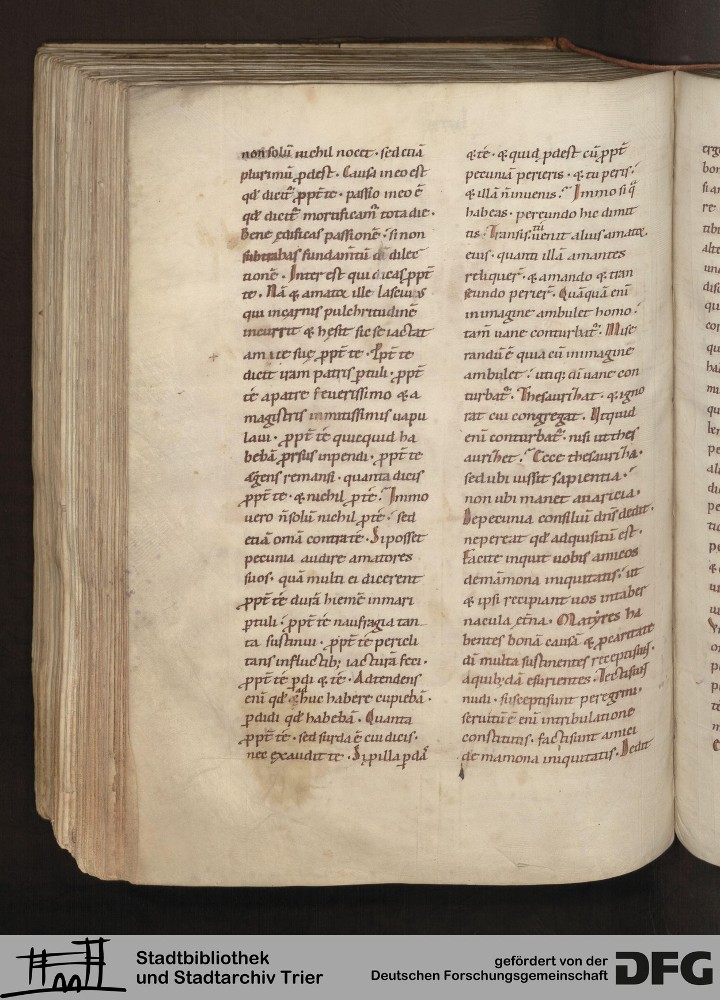 non solū nichil nocet · sed etiā
plurimū ꝓdest · Causa in eo est
qđ dicit᷒ ꝓpt̄ te · passio in eo ē
qđ dicit᷒ mortificam᷒ tota die ·
Bene edificas passionē · si non
subtrahas fundam̄tū dilec
tionē · Inter est qui dicas ꝓpt̄
te · Nā & amator ille lasciuus
qui in carnis pulchritudinē
incurrit & hesit sic se iactat
amice suę ꝓpt̄ te · Ꝓpt̄ te
dicit iram patris ꝑtuli · ꝓpt̄
te a patre seuerissimo & a
magistris inmitissimis uapu
laui · ꝓpt̄ te quicquid ha
bebā ꝓrsus inpendi · ꝓpt̄ te
egens remansi · quanta dicis
ꝓpt̄ te · & nichil ꝓ te · Immo
uero n̄ solū nichil ꝓ te · sed
etiā om̄a contra te · Si posset
pecunia audire amatores
suos · quā multi ei dicerent
ꝓpt̄ te durā hiemē in mari
ꝑtuli · ꝓpt̄ te naufragia tan
ta sustinui · ꝓpt̄ te pericli
tans in fluctib; iacturā feci ·
ꝓpt̄ te ꝑdi & te · Adtendens
eni qđ adhuc habere cupiebā ·
ꝑdidi qđ habebā · Quanta
ꝓpt̄ te · sed surda ē cui dicis ·
nec exaudit te · Si ꝑ illa ꝑdā᷒
& te · & quid ꝓdest cū ꝓpt̄
pecuniā perieris · & tu peris ·
& illā n̄ inuenis · Immo si q̊
habeas · pereundo hic dimit
tis · Transis tu · uenit alius amator
eius · quanti illā amantes
reliquer᷒ · & amando & tran
seundo perier᷒ · Quāquā eni
in imagine ambulet homo ·
tam̄ uane conturbat᷒ · Mise
randū ē quia cū in imagine
ambulet · utiq; cū uane con
turbat᷒ · Thesaurizat · & igno
rat cui congregat · Vtquid
eni conturbat᷒ · nisi ut thes
aurizet · Ecce thesauriza ·
sed ubi iussit sapientia ·
non ubi manet auaricia ·
De pecunia consiliū dn̄s dedit ·
ne pereat qđ adquisitū est ·
Facite inquit uobis amicos
de māmona iniquitatis · ut
& ipsi recipiant uos in taber
nacula et̄na · Martyres ha
bentes bonā causā & ꝑ caritatē
di multa sustinentes receptisunt
a quib;dā esurientes · Tectisunt
nudi · susceptisunt peregrini ·
seruitū ē eni in tribulatione
constitutis · factisunt amici
de mamona iniquitatis · Dedit
Stadtbibliothek
und Stadtarchiv Trier
gefördert von der
Deutschen Forschungsgemeinschaft
DFG